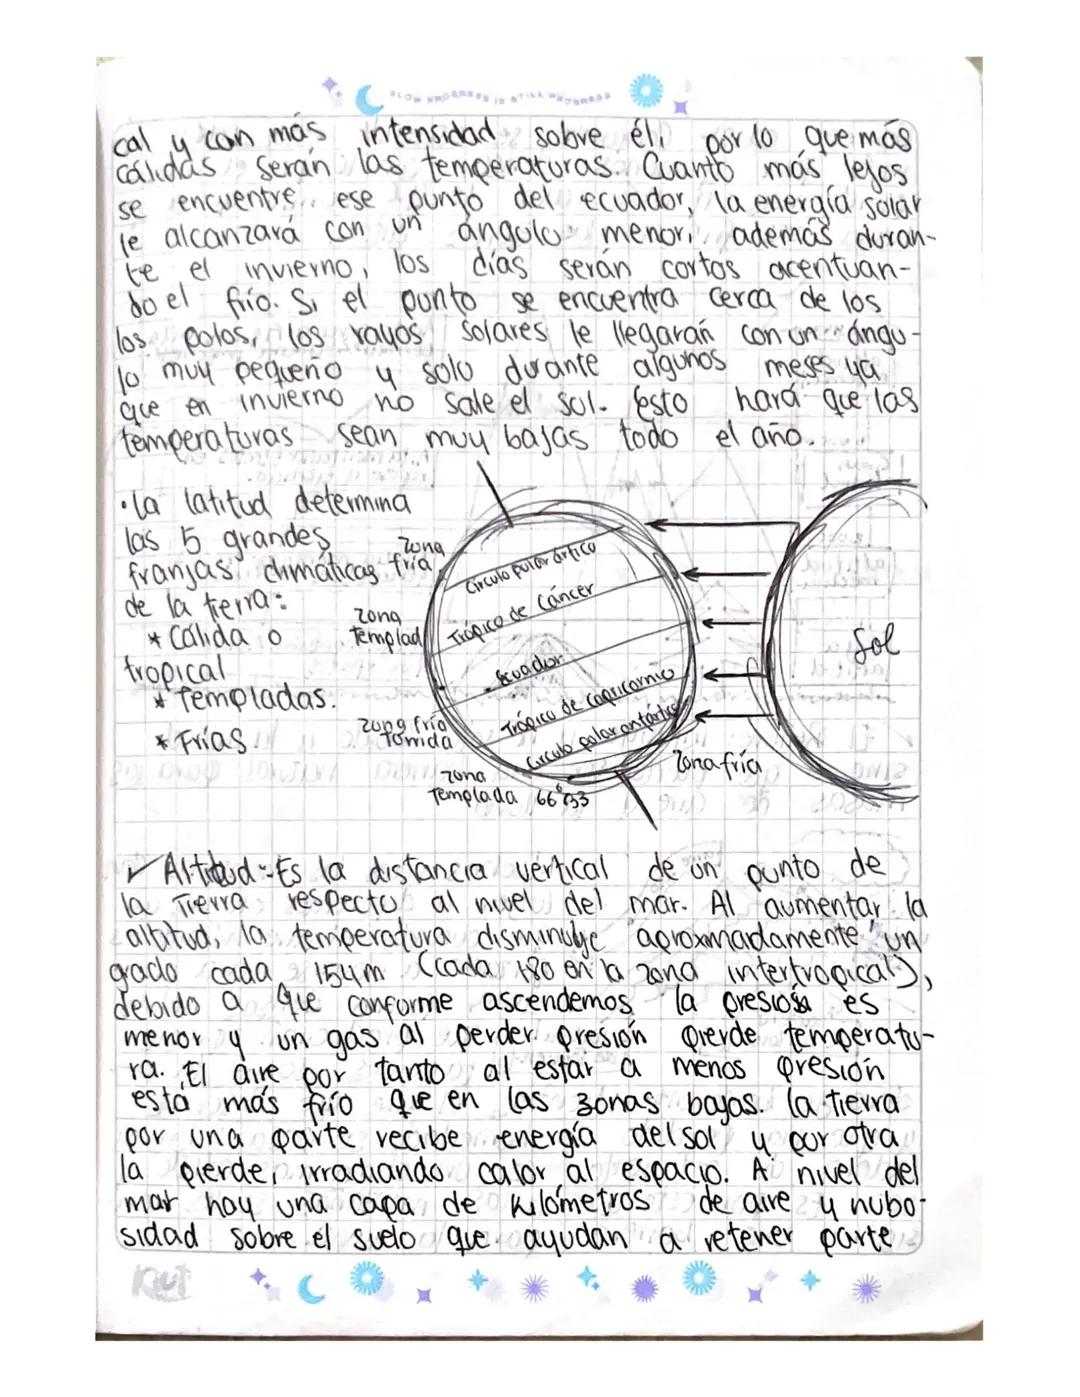 SLOW PROGRESS IS STILL PROGRESS
cal y con más intensidad sobre él, por lo que más
cálidas serán las temperaturas. Cuanto más lejos
se encuentre ese punto del ecuador, la energía solar
le alcanzará con un ángulo menor, además duran-
te el invierno, los días serán cortos acentuan-
do el frío. Si el punto se encuentra cerca de los
los polos, los rayos solares le llegarán con un ángu-
lo muy pequeño y solo durante algunos meses ya
que en invierno no sale el sol. Esto hará que las
temperaturas sean muy bajas todo el año.
• La latitud determina
las 5 grandes
franjas climáticas
de la tierra:
* Cálida o
tropical
* Templadas.
* Frías.
Zona
fría
Zona
Templad
Zona fría
Torrida
Zona
Templada 66°33
Círculo polar ártico
Trópico de Cáncer
Ecuador
Trópico de capricornio
Círculo polar antártico
Zona fría
Sol
✓ Altitud:-Es la distancia vertical de un punto de
la Tierra respecto al nivel del mar. Al aumentar la
altitud, la temperatura disminuye aproximadamente un
grado cada 154m (cada 180 en la zona intertropical),
debido a que conforme ascendemos la presión es
menor y un gas al perder presión pierde temperatu-
ra. El aire por tanto al estar a menos presión
está más frío que en las zonas bajas. La tierra
por una parte recibe energía del sol y por otra
la pierde, irradiando calor al espacio. A nivel del
mar hay una capa de kilómetros de aire y nubo-
sidad sobre el suelo que ayudan a retener parte